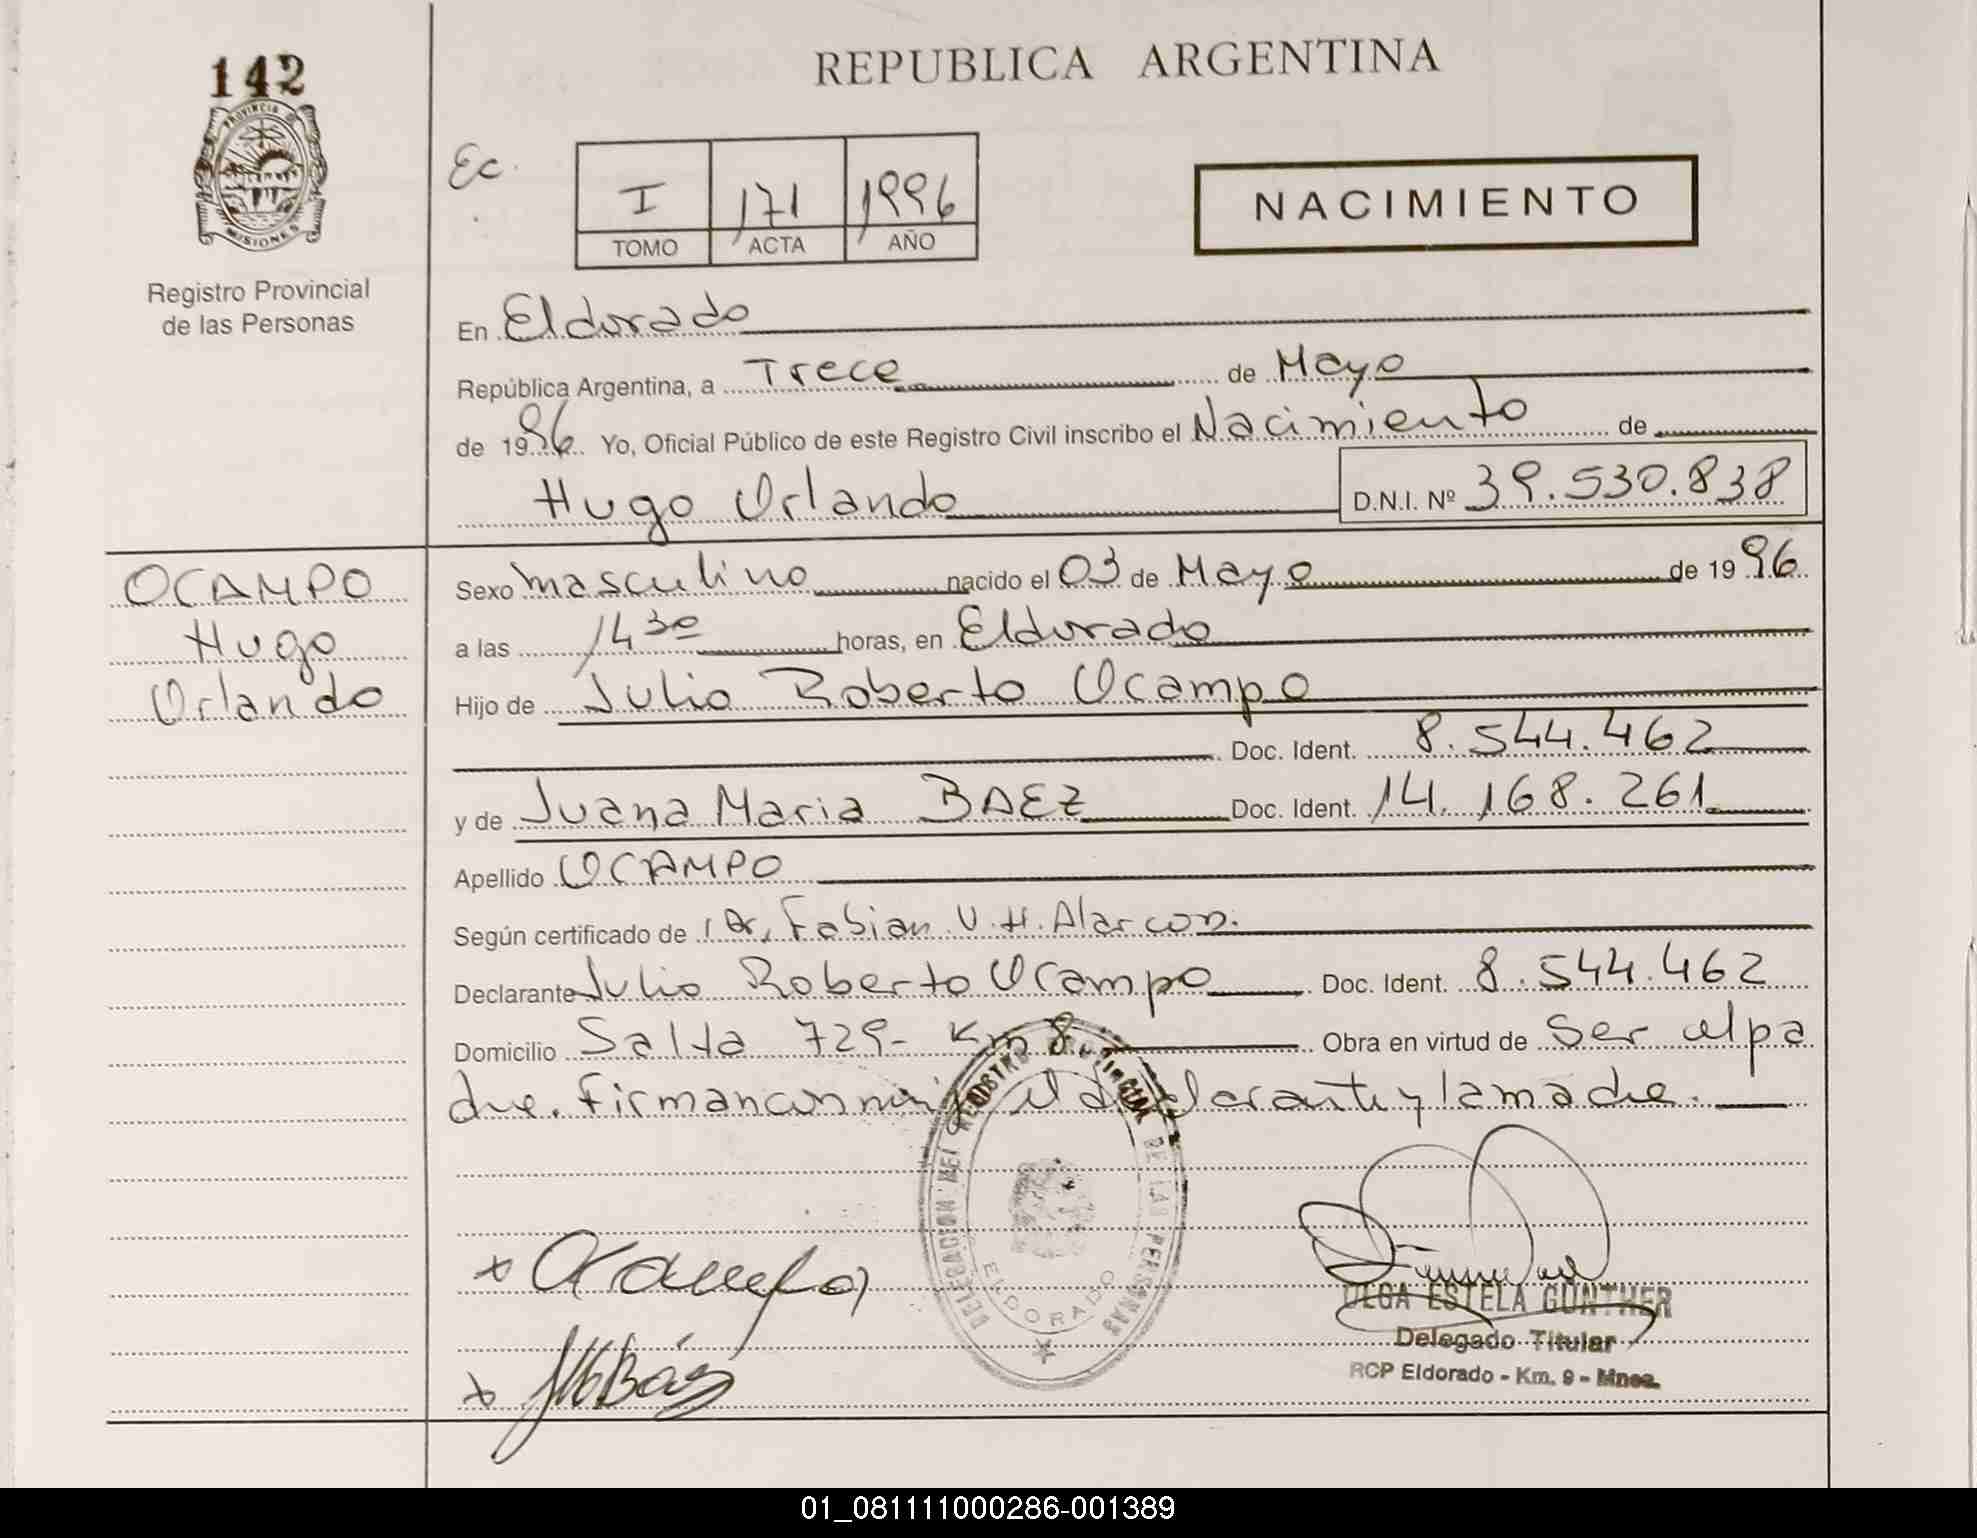 142
REPUBLICA ARGENTINA
PROVINCIA DE
MISIONES
Registro Provincial
de las Personas
Ec.
I 171 1996
TOMO ACTA AÑO
NACIMIENTO
En Eldorado
República Argentina, a Trece de Mayo
de 1996 Yo, Oficial Público de este Registro Civil inscribo el Nacimiento de
Hugo Orlando D.N.I. Nº 39.530.838
OCAMPO
Hugo
Orlando
Sexo masculino nacido el 03 de Mayo de 1996
a las 14 30 horas, en Eldorado
Hijo de Julio Roberto Ocampo
Doc. Ident. 8.544.462
y de Juana Maria BAEZ Doc. Ident. 14.168.261
Apellido OCAMPO
Según certificado de Dr. Fabian V.H. Alarcon.
Declarante Julio Roberto Ocampo Doc. Ident. 8.544.462
Domicilio Salta 729- Km 8 Obra en virtud de ser el pa
dre. Firman conmigo el declarante y la madre.
DELEGACION DEL REGISTRO PROVINCIAL DE LAS PERSONAS
ELDORADO
OLGA ESTELA GUNTHER
Delegado Titular
RCP Eldorado - Km. 9 - Mnes.
01_081111000286-001389